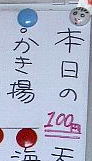 本日の
100円
天
かき揚
海